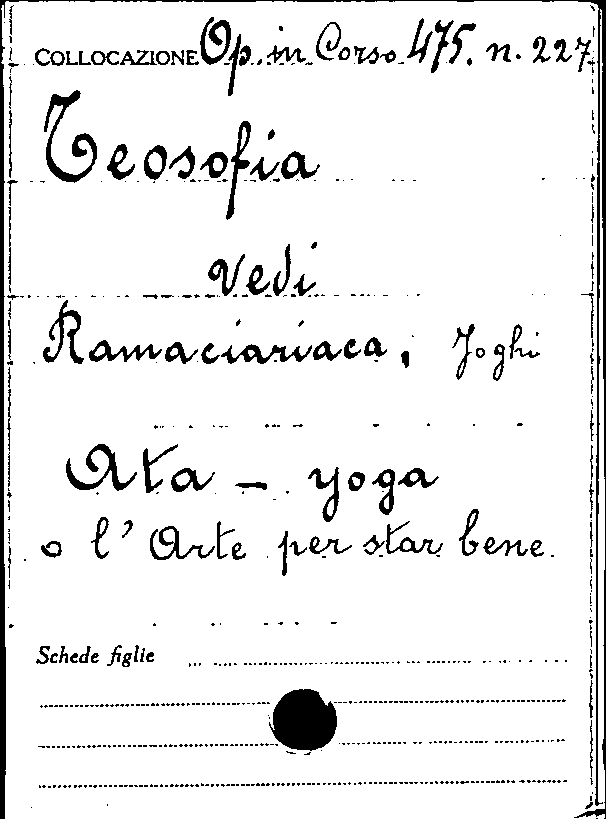 COLLOCAZIONE Op. in Corso 475. n. 227
Teosofia
Vedi
Ramaciariaca, Joghi
Ata - yoga
o l'Arte per star bene.
Schede figlie